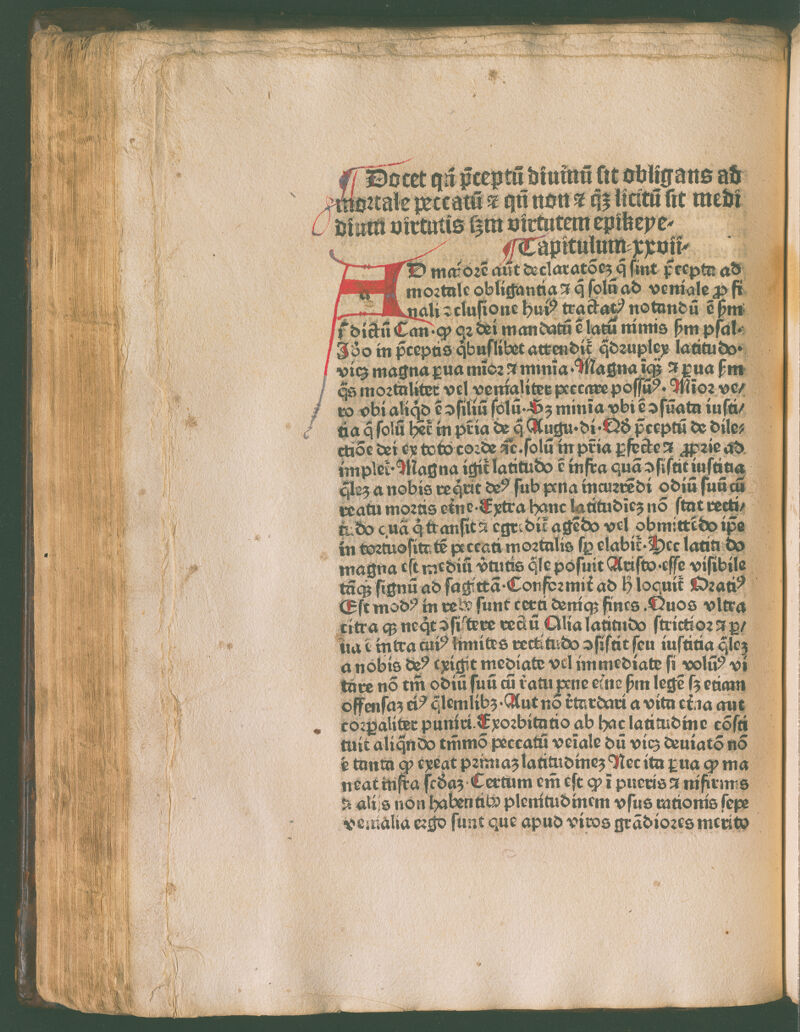 ¶ Docet qñ p̄ceptū diuinū sit obligans ad
mortale peccatū ⁊ qñ non ⁊ qͣꝫ licitū sit medi
dium virtutis ẜm virtutem epikeye·
¶Capitulum·xxvij·
AD maiorē aūt declaratōeꝫ q̄ sint p̄cepta ad
mortale obligantia ⁊ q̄ solū ad veniale ꝓ fi
nali ↄclusione huiꝰ tractatꝰ notandū ē ẜm
dictū Can·ꝙ qꝛ dei mandatū ē latū nimis ẜm psal·
Iō in p̄ceptis q̄buslibet attendit̄ q̄druplex latitudo·
viꝫ magna ꝑua mīor ⁊ minīa·Magna īqꝫ ⁊ ꝑua ẜm
q̄s mortaliter vel venialiter peccare possūꝰ·Mīor ve/
ro vbi aliq̄d ē ↄsiliū solū·Sꝫ minīa vbi ē ↄsūata iusti/
tia q̄ solū het̄ in pr̄ia de q̄ Augu·di·Qō p̄ceptū de dile/
ctiōe dei ex toto corde ⁊c̄·solū in pr̄ia ꝑfecte ⁊ ꝓprie ad
implet̄·Magna igit̄ latitudo ē infra quā ↄsistit iusticia
q̄leꝫ a nobis req̄rit deꝰ sub pena incurrēdi odiū suū cū
reatu mortis et̄ne·Extra hanc latitudīeꝫ nō stat recti/
tudo quā q̄ transit ⁊ egredit̄ agēdo vel obmittēdo ip̄e
in tortuositatē peccati mortalis sꝑ elabit̄·Hec latitudo
magna est mediū v̄tutis q̄le posuit Aristo·esse visibile
tāqꝫ signū ad sagittā·Conformit̄ ad h̄ loquit̄ Oratiꝰ
Est modꝰ in rebꝰ sunt certi deniqꝫ fines·Quos vltra
citra qꝫ neq̄t ↄsistere rectū Alia latitudo strictior ⁊ ꝑ/
ua ē intra cuiꝰ limites rectitudo ↄsistit seu iustitia q̄leꝫ
a nobis deꝰ exigit mediate vel immediate si volūꝰ vi
tare nō tm̄ odiū suū cū r̄atu pene et̄ne ẜm legē sꝫ etiam
offensaꝫ eiꝰ q̄lemlibꝫ·Aut nō r̄tardari a vita et̄na aut
corꝑaliter puniri·Exorbitatio ab hac latitudine cōsti
tuit aliq̄ndo tm̄mō peccatū veīale dū viꝫ deuiatō nō
ē tanta ꝙ exeat primaꝫ latitudineꝫ Nec ita ꝑua ꝙ ma
neat infra scd̄aꝫ·Certum em̄ est ꝙ ī pueris ⁊ īnfirmis
⁊ alijs non habentibꝰ plenitudinem vsus rationis sepe
venialia ergo sunt que apud viros grādiores merito